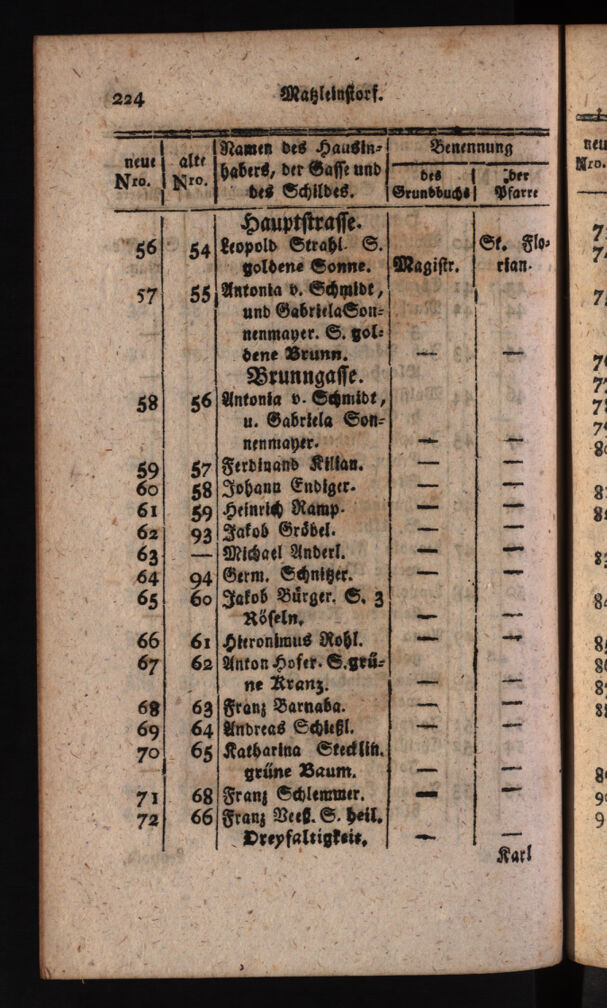 224 Matzleinstorf.
neue Nro. | alte Nro. | Namen des Hausin= | Benennung
habers, der Gasse und | des | der
des Schildes. | Grundbuchs | Pfarre
Hauptstrasse.
56 54 Leopold Strahl. S. St. Flo=
goldene Sonne. Magistr. rian.
57 55 Antonia v. Schmidt,
und Gabriela Son=
nenmayer. S. gol=
dene Brunn. — —
Brunngasse.
58 56 Antonia v. Schmidt,
u. Gabriela Son=
nenmayer. — —
59 57 Ferdinand Kilian. — —
60 58 Johann Endiger. — —
61 59 Heinrich Ramp. — —
62 93 Jakob Gröbel. — —
63 — Michael Anderl. — —
64 94 Germ. Schnitzer. — —
65 60 Jakob Bürger. S. 3
Röseln. — —
66 61 Hieronimus Rohl. — —
67 62 Anton Hofer. S. grü=
ne Kranz. — —
68 63 Franz Barnaba. — —
69 64 Andreas Schießl. — —
70 65 Katharina Stecklin.
grüne Baum. — —
71 68 Franz Schlemmer. — —
72 66 Franz Veeß. S. heil.
Dreyfaltigkeit. — —
Karl
neu
Nro.